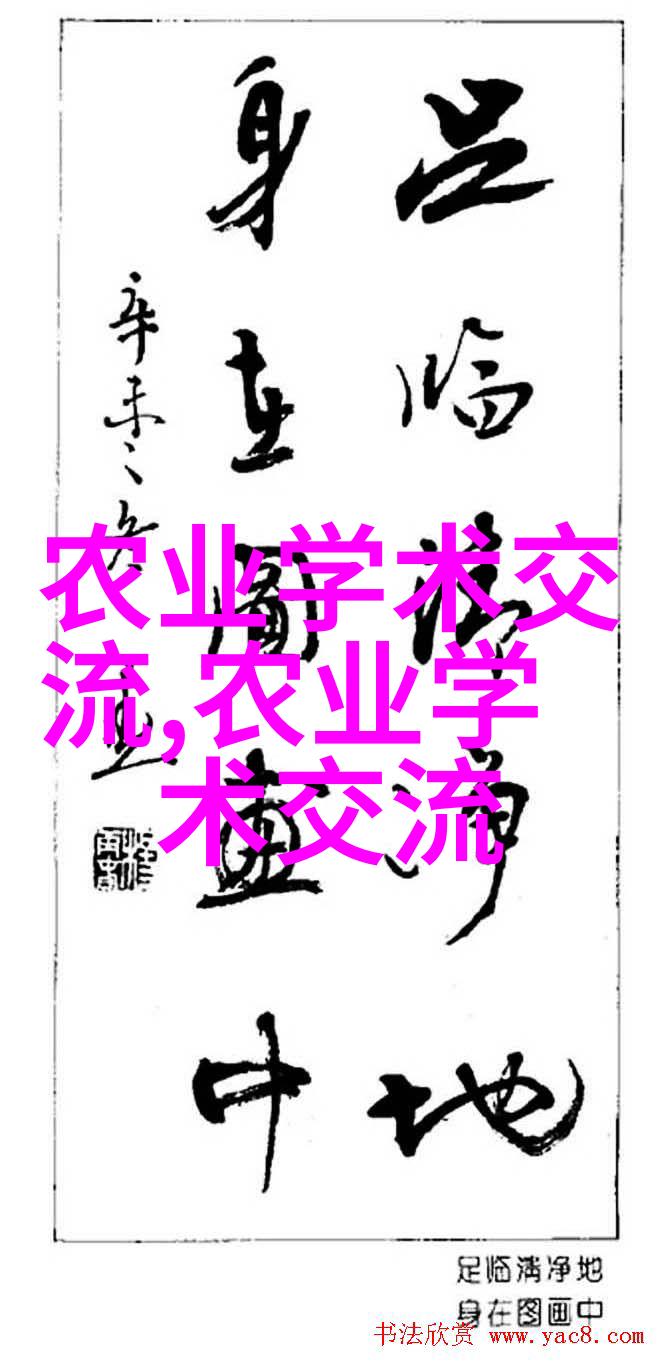 足临清净地
身在图画中
辛未之冬
农业学术交
流,农业学
术交流
足临清净地
身在图画中
书法欣赏 www.yac8.com